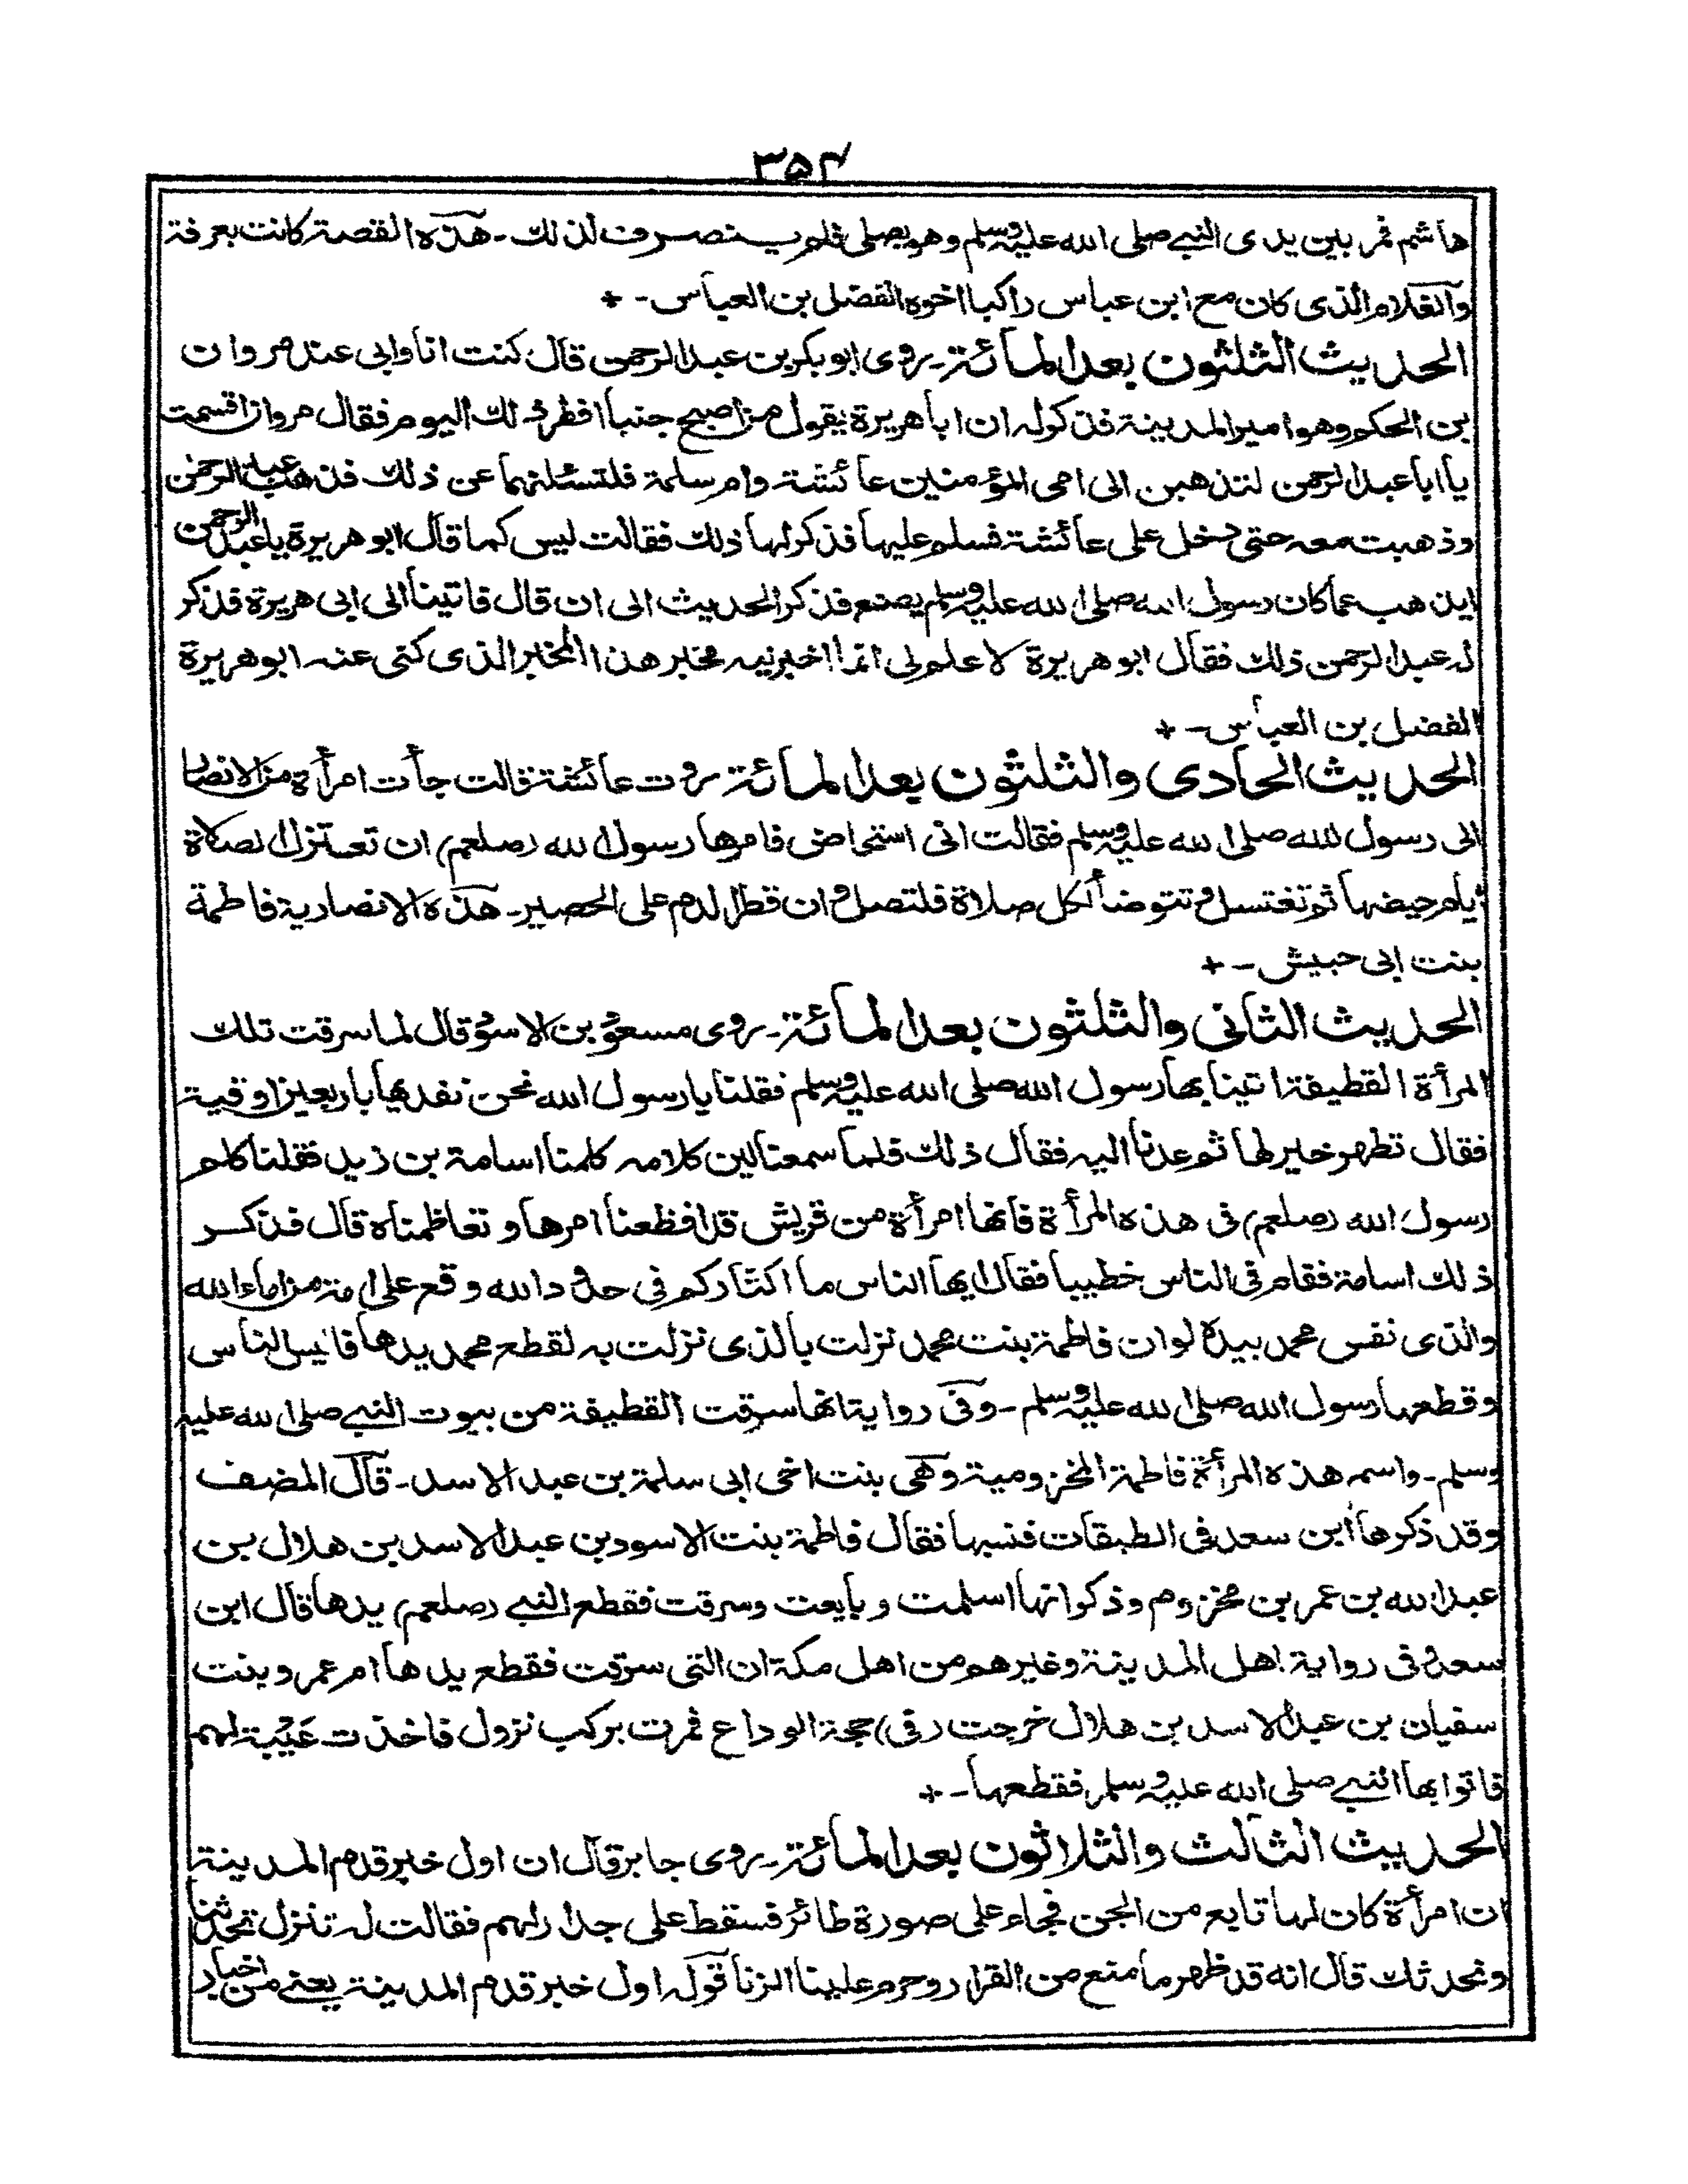 ٣٥٤
هاشم فمر بين يدى النبے صلى الله عليہ وسلم وهو يصلى فلم ينصرف لذلك۔ هذه القصة كانت بعرفة
والغلام الذى كان مع ابن عباس راكبا اخوه الفضل بن العباس۔ +
الحديث الثلثون بعد المائة۔ روى ابو بكر بن عبد الرحمن قال كنت انا وابى عند مروان
بن الحكم وهو امير المدينة فذكر له ان ابا هريرة يقول من اصبح جنبا افطر ذلك اليوم فقال مروان اقسمت
يا ابا عبد الرحمن لتذهبن الى امى المؤمنين عائشة وام سلمة فلتسئلنهما عن ذلك فذهب عبد الرحمن
وذهبت معه حتى دخل على عائشة فسلم عليها فذكر لها ذلك فقالت ليس كما قال ابو هريرة يا عبد الرحمن
اين هب عما كان رسول الله صلى الله عليہ وسلم يصنع فذكر الحديث الى ان قال فاتينا الى ابى هريرة فذكر
له عبد الرحمن ذلك فقال ابو هريرة لا علم لى انما اخبرنيه مخبر هذا المخبر الذى كنى عنه ابو هريرة
الفضل بن العباس۔ +
الحديث الحادى والثلثون بعد المائة روت عائشة قالت جأت امرأة من الانصار
الى رسول الله صلى الله عليہ وسلم فقالت انى استحاض فامرها رسول الله (صلعم) ان تعتزل الصلاة
ايام حيضها ثم تغتسل و تتوضأ لكل صلاة فلتصل و ان قطر الدم على الحصير۔ هذه الانصارية فاطمة
بنت ابى حبيش۔ +
الحديث الثانى والثلثون بعد المائة۔ روى مسعود بن الاسود قال لما سرقت تلك
المرأة القطيفة اتينا بها رسول الله صلى الله عليہ وسلم فقلنا يا رسول الله نحن نفديها باربعين اوقية
فقال تطهر خير لها ثم عدنا اليه فقال ذلك فلما سمعنا لين كلامه كلمنا اسامة بن زيد فقلنا كلم
رسول الله (صلعم) فى هذه المرأة فانها امرأة من قريش قد افظعنا امرها و تعاظمناه قال فذكر
ذلك اسامة فقام فى الناس خطيبا فقال ايها الناس ما اكثاركم فى حدود الله وقع على امة من اماء الله
والذى نفس محمد بيده لو ان فاطمة بنت محمد نزلت بالذى نزلت به لقطع محمد يدها فايس الناس
وقطعها رسول الله صلى الله عليہ وسلم۔ وفى رواية انها سرقت القطيفة من بيوت النبے صلى الله عليہ
وسلم۔ واسم هذه المرأة فاطمة المخزومية وهى بنت اخى ابى سلمة بن عبد الاسد۔ قال المصنف
وقد ذكرها ابن سعد فى الطبقات فنسبها فقال فاطمة بنت الاسود بن عبد الاسد بن هلال بن
عبد الله بن عمر بن مخزوم وذكر انها اسلمت و بايعت وسرقت فقطع النبے (صلعم) يدها قال ابن
سعد و فى رواية اهل المدينة وغيرهم من اهل مكة ان التى سرقت فقطع يدها ام عمرو بنت
سفيان بن عبد الاسد بن هلال خرجت (فى) حجة الوداع فمرت بركب نزول فاخذت عَيْبة لهم
فاتوا بها النبے صلى الله عليہ وسلم فقطعها۔ +
الحديث الثالث والثلاثون بعد المائة۔ روى جابر قال ان اول خبر قدم المدينة
ان امرأة كان لها تابع من الجن فجاء على صورة طائر فسقط على جدار لهم فقالت له تنزل تحدثنا
ونحدثك قال انه قد ظهر ما منع من القرار وحرم علينا الزنا قوله اول خبر قدم المدينة يعنے من اخبار